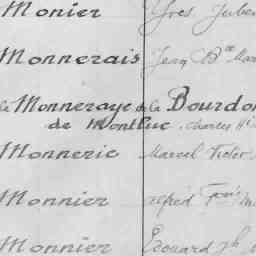 Monier Yves Juber
Monnerais Jean Bte Mar
de la Monneraye de la Bourdon
de Montluc, Charles
Monnerie Marcel Victor
Monnier Alfred Fois
Monnier Edouard Jh